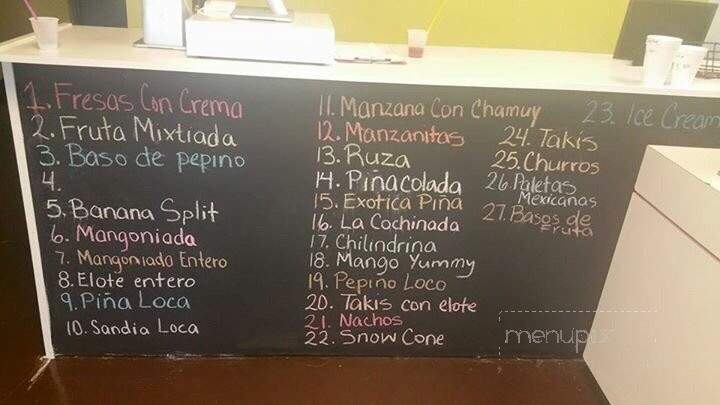 1. Fresas Con Crema
2. Fruta Mixtiada
3. Baso de pepino
4.
5. Banana Split
6. Mangoniada
7. Mangoniado Entero
8. Elote entero
9. Piña Loca
10. Sandia Loca
11. Manzana Con Chamuy
12. Manzanitas
13. Ruza
14. Piña colada
15. Exotica Piña
16. La Cochinada
17. Chilindrina
18. Mango Yummy
19. Pepino Loco
20. Takis con elote
21. Nachos
22. Snow Cone
23. Ice Cream
24. Takis
25. Churros
26. Paletas
Mexicanas
27. Basos de
Fruta
menupix